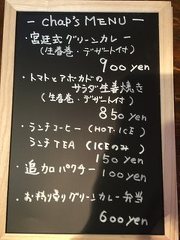 - chap's MENU -
・宮廷式グリーンカレー
(生春巻・デザート付)
900yen
・トマトとアボカドの
サラダ生姜焼き
(生春巻・デザート付)
850yen
・ランチコーヒー (HOT・ICE)
ランチTEA (ICEのみ)
150yen
・追加パクチー 100yen
・お持ち帰りグリーンカレー弁当
600yen